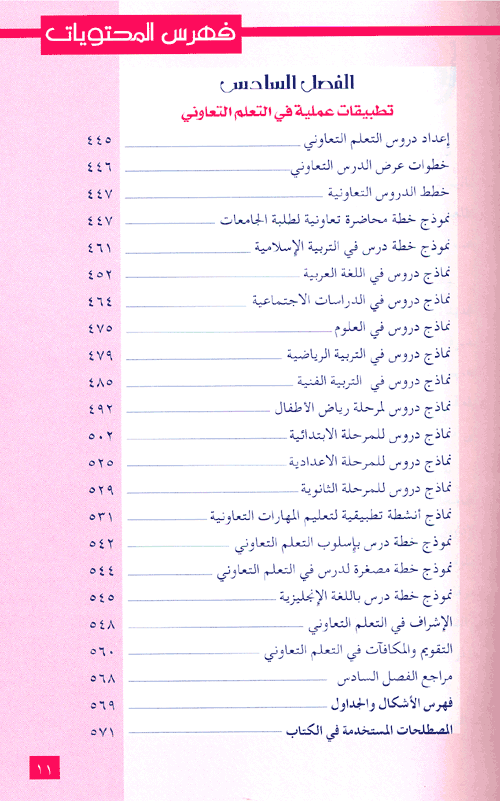 فهرس المحتويات
الفصل السادس
تطبيقات عملية في التعلم التعاوني
إعداد دروس التعلم التعاوني ٤٤٥
خطوات عرض الدرس التعاوني ٤٤٦
خطط الدروس التعاونية ٤٤٧
نموذج خطة محاضرة تعاونية لطلبة الجامعات ٤٤٧
نموذج خطة درس في التربية الإسلامية ٤٦١
نماذج دروس في اللغة العربية ٤٥٢
نماذج دروس في الدراسات الاجتماعية ٤٦٤
نماذج دروس في العلوم ٤٧٥
نماذج دروس في التربية الرياضية ٤٧٩
نماذج دروس في التربية الفنية ٤٨٥
نماذج دروس لمرحلة رياض الأطفال ٤٩٢
نماذج دروس للمرحلة الابتدائية ٥٠٢
نماذج دروس للمرحلة الاعدادية ٥٢٥
نماذج دروس للمرحلة الثانوية ٥٢٩
نماذج أنشطة تطبيقية لتعليم المهارات التعاونية ٥٣١
نموذج خطة درس بإسلوب التعلم التعاوني ٥٤٢
نموذج خطة مصغرة لدرس في التعلم التعاوني ٥٤٤
نموذج خطة درس باللغة الإنجليزية ٥٤٥
الإشراف في التعلم التعاوني ٥٤٨
التقويم والمكافآت في التعلم التعاوني ٥٦٠
مراجع الفصل السادس ٥٦٨
فهرس الأشكال والجداول ٥٦٩
المصطلحات المستخدمة في الكتاب ٥٧١
١١